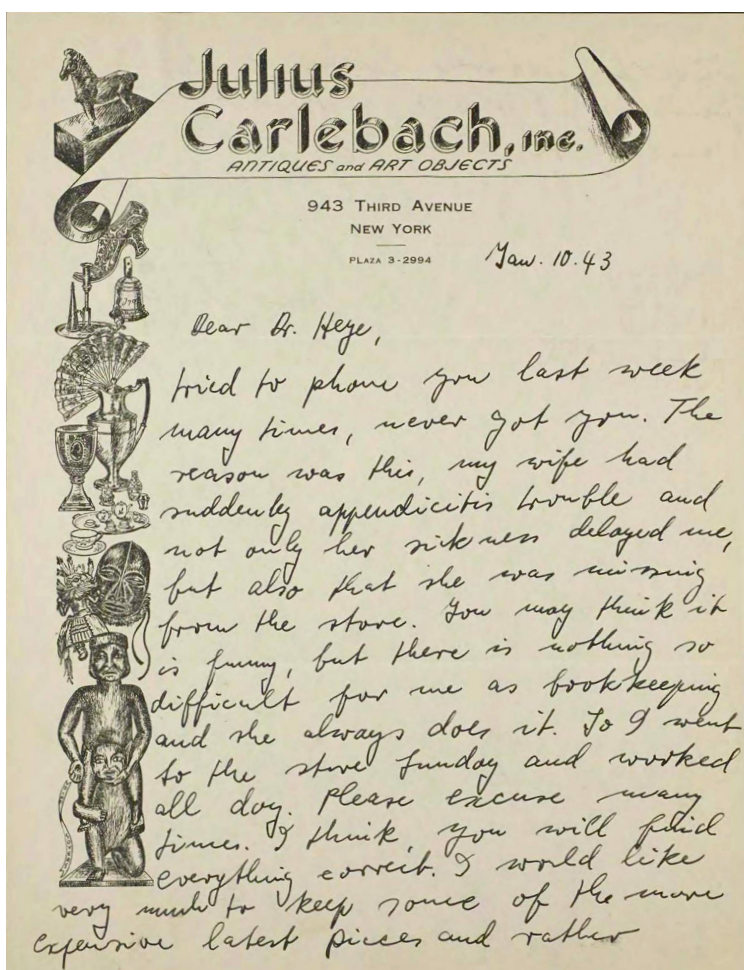 Julius
Carlebach, INC.
ANTIQUES and ART OBJECTS
943 THIRD AVENUE
NEW YORK
PLAZA 3-2994
Jan. 10. 43
Dear Dr. Heye,
tried to phone you last week
many times, never got you. The
reason was this, my wife had
suddenly appendicitis trouble and
not only her sickness delayed me,
but also that she was missing
from the store. You may think it
is funny, but there is nothing so
difficult for me as bookkeeping
and she always does it. So I went
to the store Sunday and worked
all day. Please excuse many
times. I think, you will find
everything correct. I would like
very much to keep some of the more
expensive latest pieces and rather